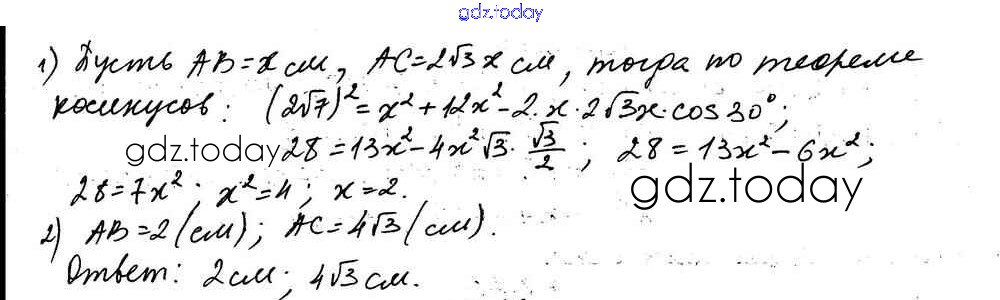 gdz.today
1) Пусть AB=x см, AC=2√3x см, тогда по теореме
косинусов: (2√7)²=x²+12x²-2·x·2√3x·cos30°;
gdz.today 28=13x²-4x²√3·√3/2; 28=13x²-6x²;
28=7x²; x²=4; x=2.
gdz.today
2) AB=2(см); AC=4√3(см).
Ответ: 2см; 4√3см.